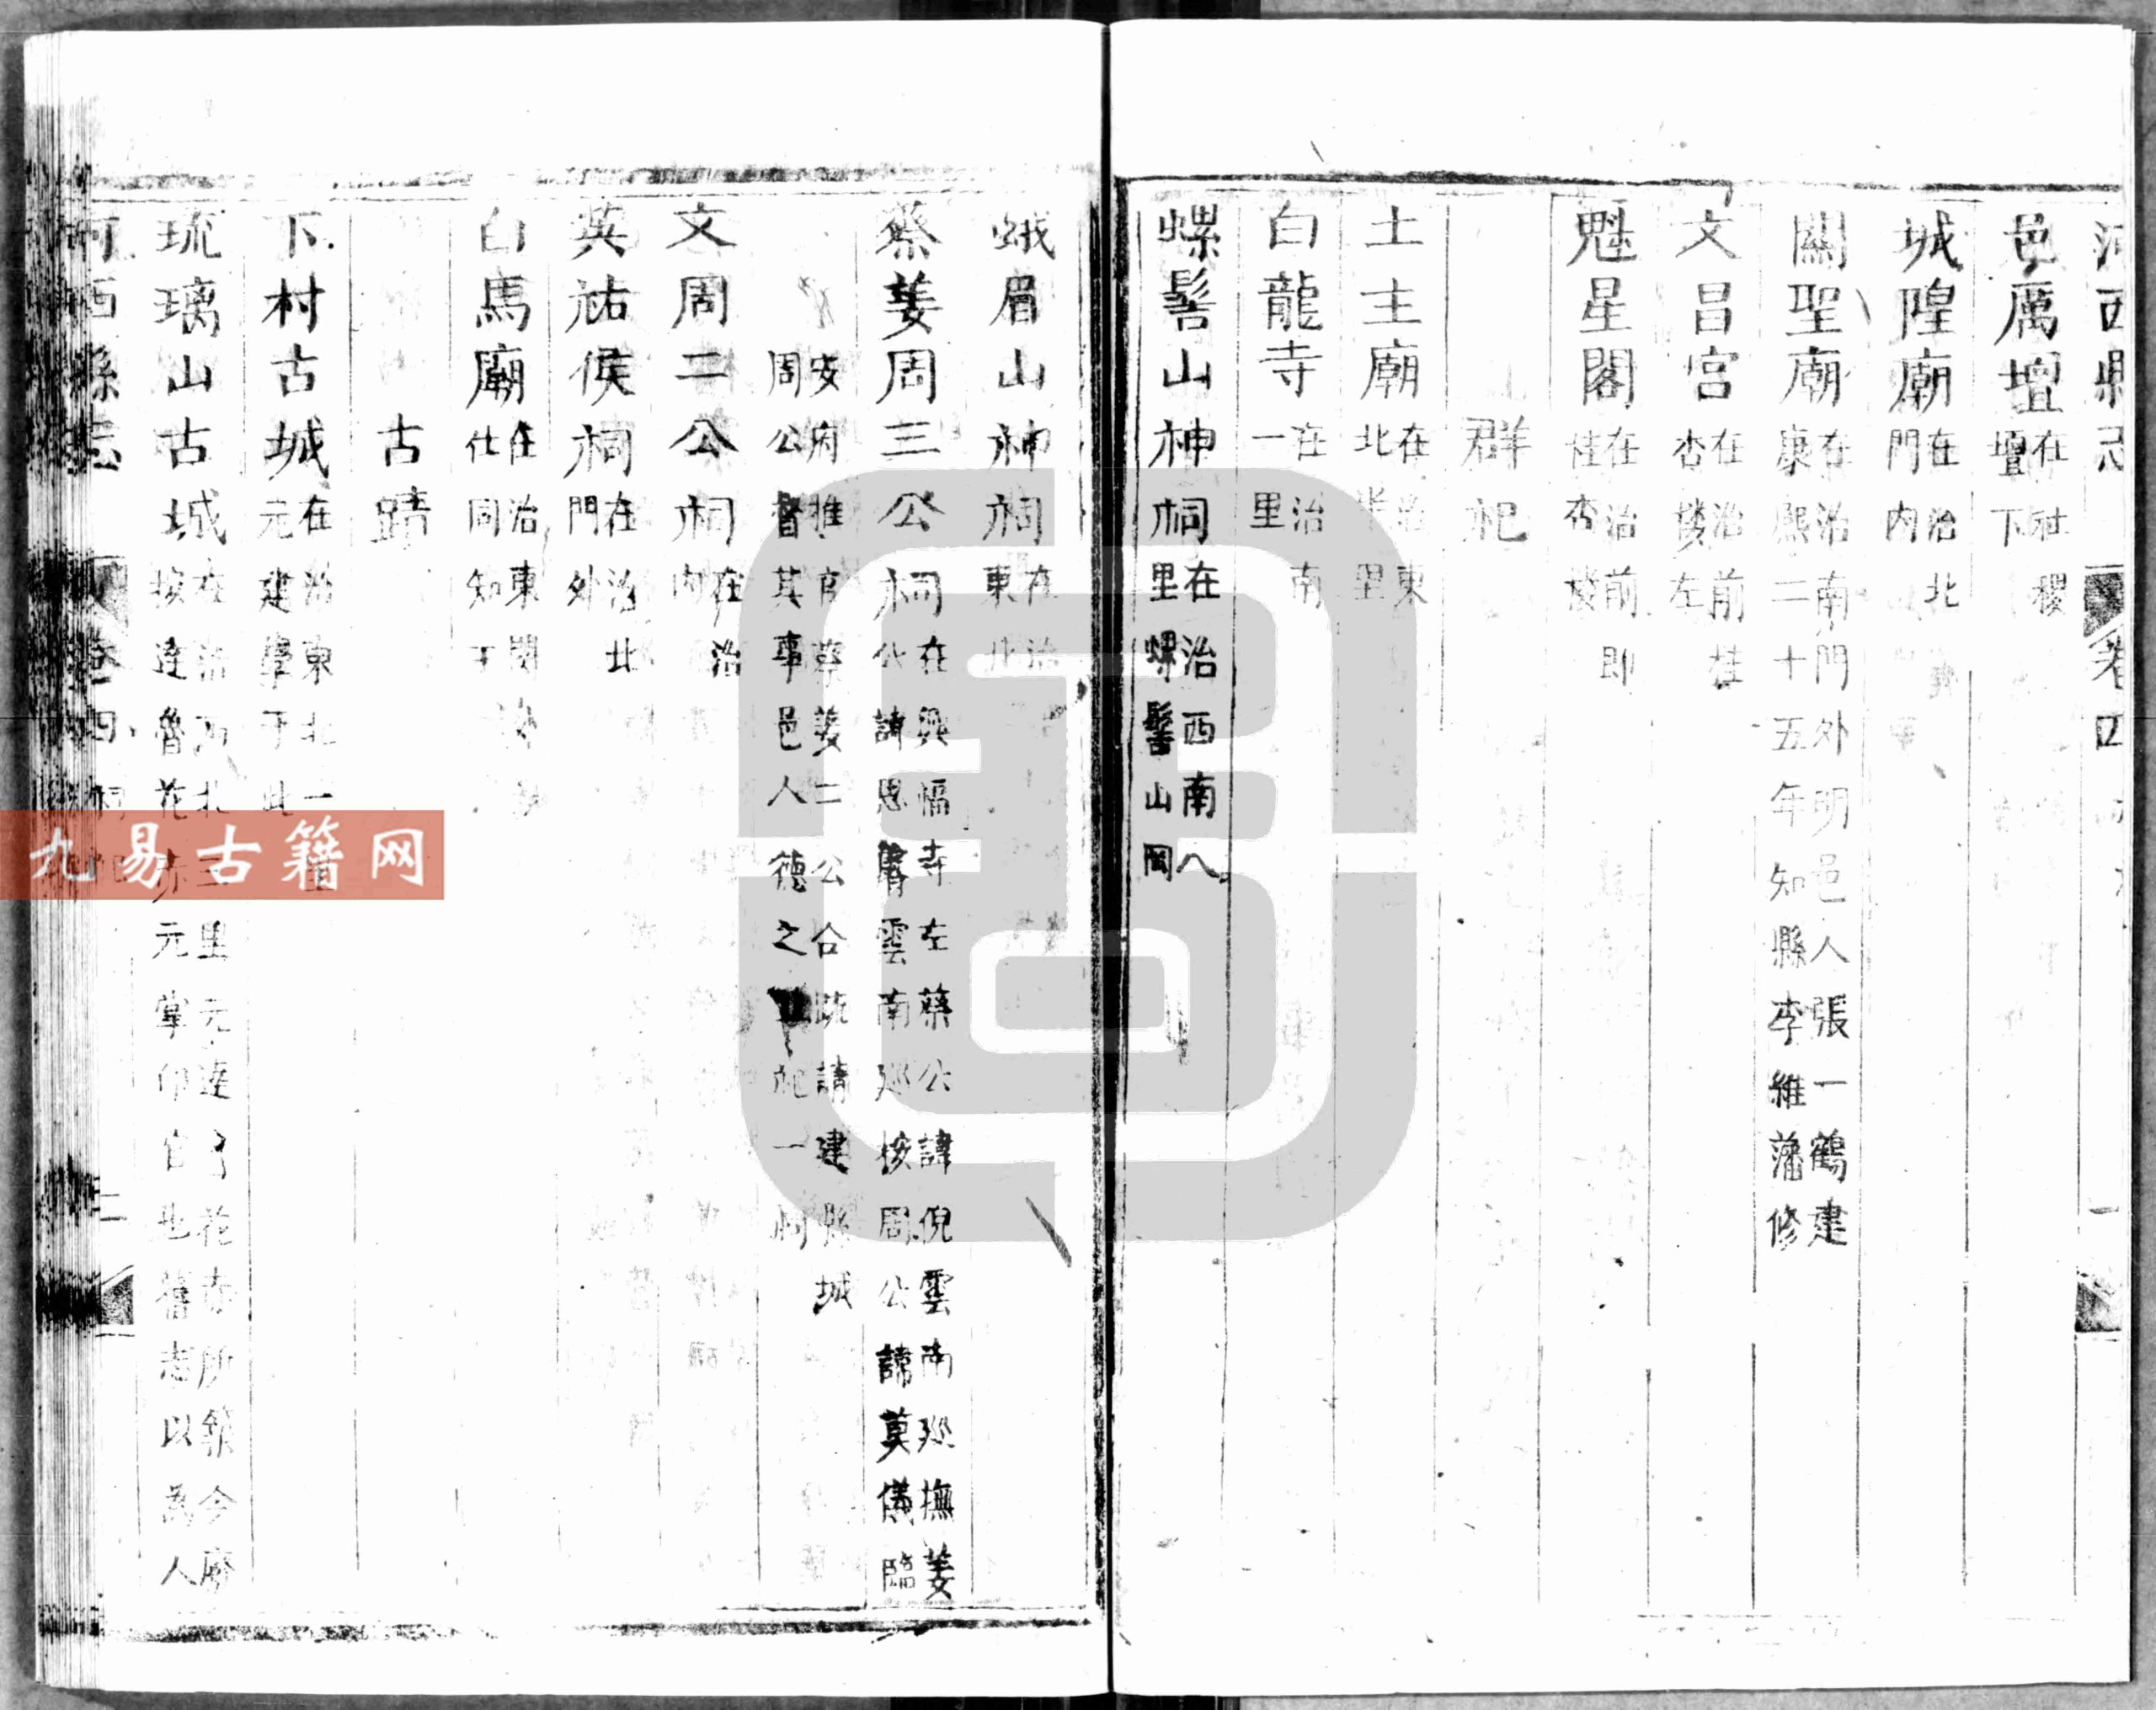 河西縣志 卷四 一
邑厲壇在社稷壇下
城隍廟在治北門内
關聖廟在治南門外明邑人張一鶴建康熙二十五年知縣李維藩修
文昌宮在治前桂杏樓左
魁星閣在治前即桂杏樓
群祀
土主廟在治東北半里
白龍寺在治南一里
螺髻山神祠在治西南八里螺髻山岡
蛾眉山神祠在治東北
蔡姜周三公祠在興福寺左蔡公諱倪雲南巡撫姜公諱思睿雲南巡按周公諱莫儀臨
安府推官蔡姜二公合疏請建縣城周公督其事邑人德之祀一祠
文周二公祠在治内
英祐侯祠在治北門外
白馬廟在治東關
古蹟
下村古城在治東北一里元建學于此
琉璃山古城在治西北三里元達魯花赤所築今廢按達魯花赤元掌印官也舊志以為人
河西縣志 卷四 祠祀 二
九易古籍网